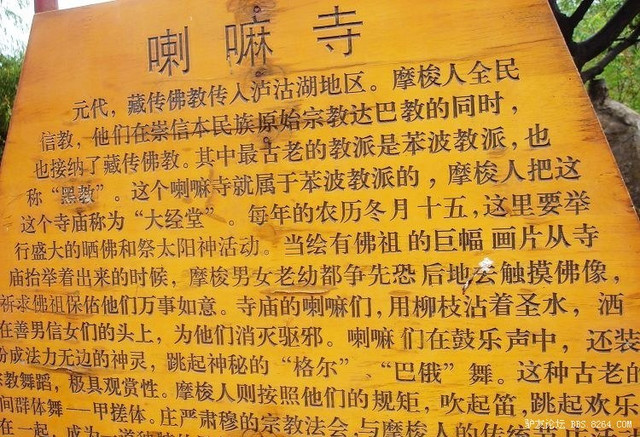 喇嘛寺
元代，藏传佛教传入泸沽湖地区。摩梭人全民
信教，他们在崇信本民族原始宗教达巴教的同时，
也接纳了藏传佛教。其中最古老的教派是苯波教派，也
称“黑教”。这个喇嘛寺就属于苯波教派的，摩梭人把这
这个寺庙称为“大经堂”。每年的农历冬月十五，这里要举
行盛大的晒佛和祭太阳神活动。当绘有佛祖的巨幅画片从寺
庙抬举着出来的时候，摩梭男女老幼都争先恐后地去触摸佛像，
祈求佛祖保佑他们万事如意。寺庙的喇嘛们，用柳枝沾着圣水，洒
在善男信女们的头上，为他们消灭驱邪。喇嘛们在鼓乐声中，还装
扮成法力无边的神灵，跳起神秘的“格尔”、“巴俄”舞。这种古老的
宗教舞蹈，极具观赏性。摩梭人则按照他们的规矩，吹起笛，跳起欢乐
间群体舞——甲搓体。庄严肃穆的宗教法会，与摩梭人的传统
在一起，成为一道
驴友论坛 BBS.8264.com